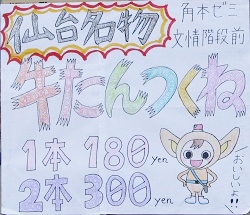 仙台名物
角本ゼミ
文情階段前
牛たんつくね
1本 180yen
2本 300yen
おいしいよ!!